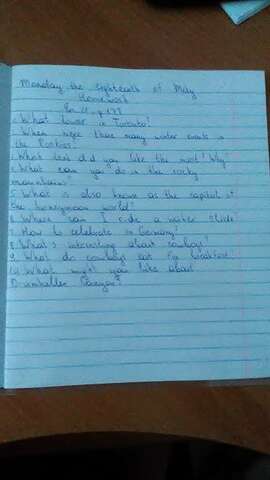 Monday the eighteenth of May
Homework
Ex. p. 177
1. What tower in Toronto?
2. When were there many winter events in
the Rockies?
3. What did you like the most? Why?
4. What can you do in the rocky
mountains?
5. What is also known as the capital of
the honeymoon world?
6. Where can I ride a water slide?
7. How to celebrate in Germany?
8. What's interesting about cowboys?
9. What do cowboys eat for breakfast
10. What might you like about
Canyon?